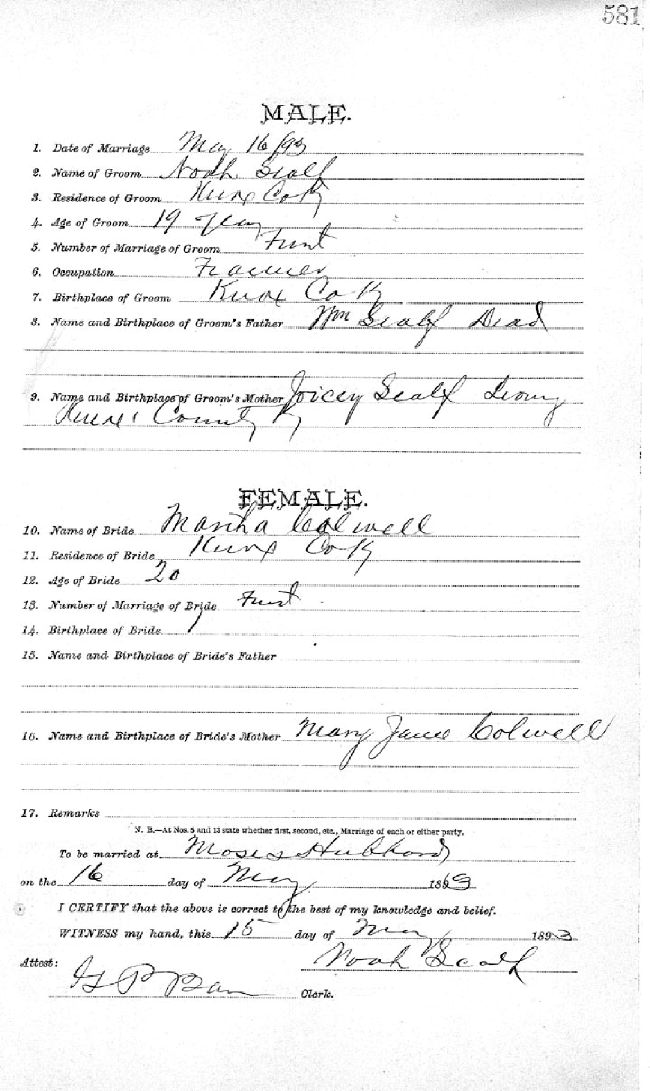 581
MALE.
1. Date of Marriage May 16 / 93
2. Name of Groom Noah Scalf
3. Residence of Groom Knox Co Ky
4. Age of Groom 19 years
5. Number of Marriage of Groom First
6. Occupation Farmer
7. Birthplace of Groom Knox Co Ky
8. Name and Birthplace of Groom's Father Wm Scalf Dead
9. Name and Birthplace of Groom's Mother Joicey Scalf Living
Knox County Ky
FEMALE.
10. Name of Bride Martha Colwell
11. Residence of Bride Knox Co Ky
12. Age of Bride 20
13. Number of Marriage of Bride First
14. Birthplace of Bride
15. Name and Birthplace of Bride's Father
16. Name and Birthplace of Bride's Mother Mary Jane Colwell
17. Remarks
N. B.—At Nos. 5 and 13 state whether first, second, etc., Marriage of each or either party.
To be married at Moses Hubbard
on the 16 day of May 1893
I CERTIFY that the above is correct to the best of my knowledge and belief.
WITNESS my hand, this 15 day of May 1893
Noah Scalf
Attest:
Clerk.